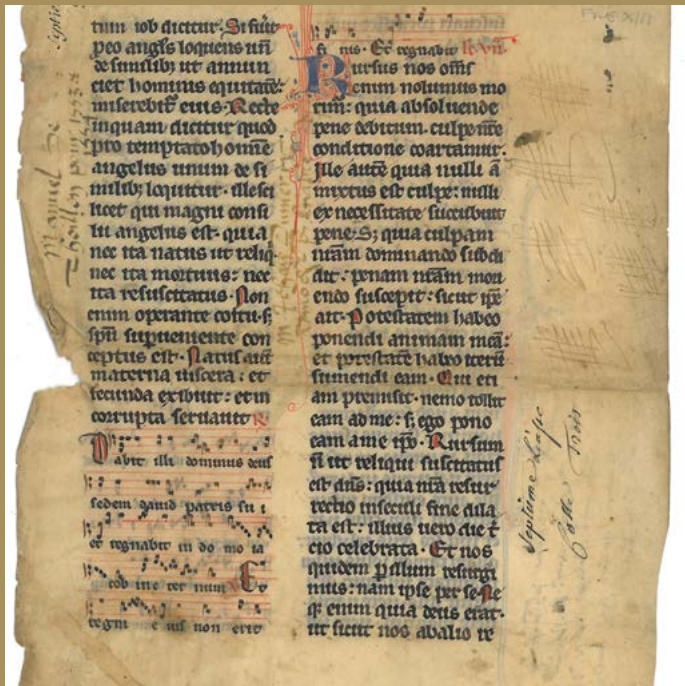 tum iob dicitur. Si fuit
peo angls loquens un
de similibz ut annun
ciet hominis equitate:
miserebit eius. Recte
inquam dicitur quod
pro temptato homine
angelus unum de si
milibz loquitur. ille sci
licet qui magni consi
lii angelus est. quia
nec ita natus ut reliq
nec ita mortuus: nec
ita resuscitatus. Non
enim operante coitu. sz
spu supueniente con
ceptus est. Natus aut
materna uiscera: et
fecunda exibuit: et in
corrupta seruauit R
Dabit illi dominus deus
sedem dauid patris su i
et regnabit in do mo ia
cob in e ter num V Et
regni e ius non erit
fi nis. Et regnabit
Rursus nos oms
enim nolumus mo
rim: quia absoluende
pene debitum. culpe nre
conditione coartamur.
Ille aute quia nulli a
mixtus est culpe: nulli
ex necessitate sucubuit
pene. Sz quia culpam
nram dominando subdi
dit: penam nram mori
endo suscepit: sicut ipe
ait. Potestatem habeo
ponendi animam mea:
et potestate habeo iteru
sumendi eam. Qui eti
am premisit. nemo tollit
eam ad me: sz ego pono
eam a me ipo. Rursum
n ut reliqui suscitatus
est dns: quia nra resur
rectio in seculi fine dila
ta est: illius uero die t
cio celebrata. Et nos
quidem p illum resurgi
mus: nam ipse per se. Ne
qz enim quia deus erat.
ut sicut nos ab alio re
Manuel de
Septieme Liasse
Cotte Trois